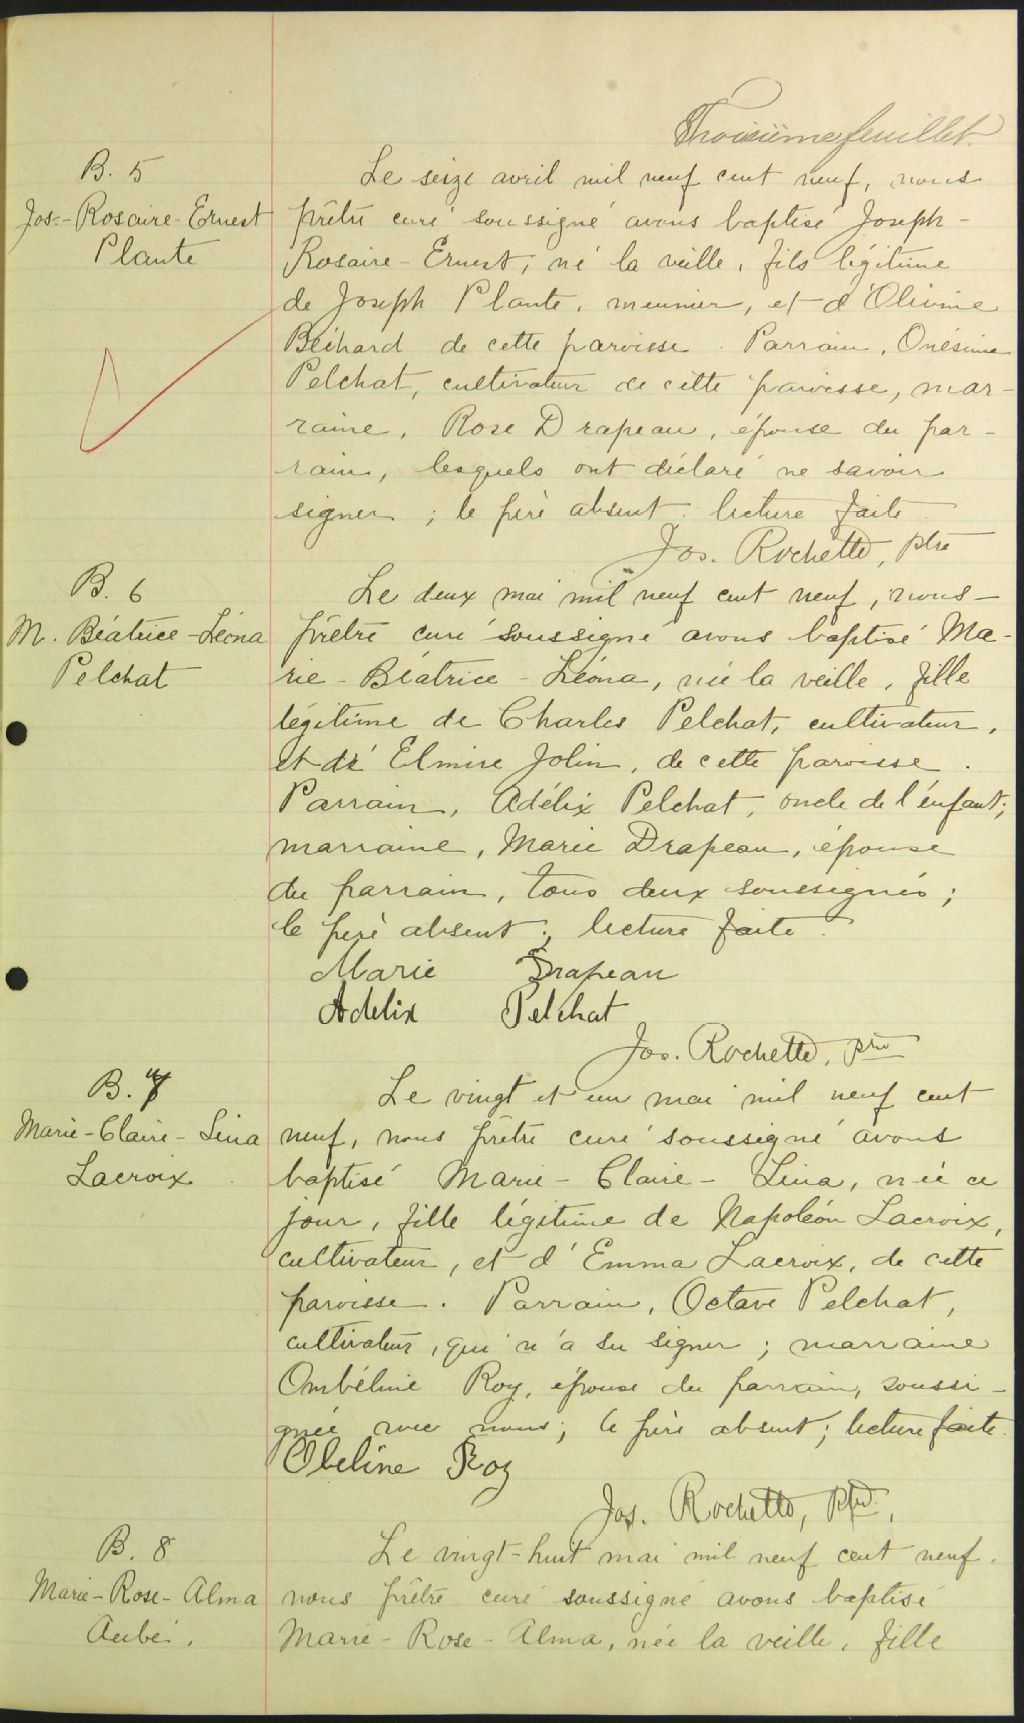 Troisième feuillet.
B. 5
Jos.-Rosaire-Ernest
Plante
Le seize avril mil neuf cent neuf, nous
prêtre curé soussigné avons baptisé Joseph-
Rosaire-Ernest, né la veille, fils légitime
de Joseph Plante, meunier, et d'Olivine
Béchard de cette paroisse. Parrain, Onésime
Pelchat, cultivateur de cette paroisse, mar-
raine, Rose Drapeau, épouse du par-
rain, lesquels ont déclaré ne savoir
signer ; le père absent. lecture faite.
Jos. Rochette, ptre
B. 6
M. Béatrice-Léona
Pelchat
Le deux mai mil neuf cent neuf, nous-
prêtre curé soussigné avons baptisé Ma-
rie-Béatrice-Léona, née la veille, fille
légitime de Charles Pelchat, cultivateur,
et de Elmire Jolin, de cette paroisse.
Parrain, Adélix Pelchat, oncle de l'enfant;
marraine, Marie Drapeau, épouse
du parrain, tous deux soussignés ;
le père absent ; lecture faite.
Marie Drapeau
Adelix Pelchat
Jos. Rochette, ptre
B. 7
Marie-Claire-Lina
Lacroix
Le vingt et un mai mil neuf cent
neuf, nous prêtre curé soussigné avons
baptisé Marie-Claire-Lina, née ce
jour, fille légitime de Napoléon Lacroix,
cultivateur, et d'Emma Lacroix, de cette
paroisse. Parrain, Octave Pelchat,
cultivateur, qui n'a su signer ; marraine
Ombéline Roy, épouse du parrain, soussi-
gnée avec nous; le père absent; lecture faite.
Obeline Roy
Jos. Rochette, ptre.
B. 8
Marie-Rose-Alma
Aubé.
Le vingt-huit mai mil neuf cent neuf.
nous prêtre curé soussigné avons baptisé
Marie-Rose-Alma, née la veille, fille